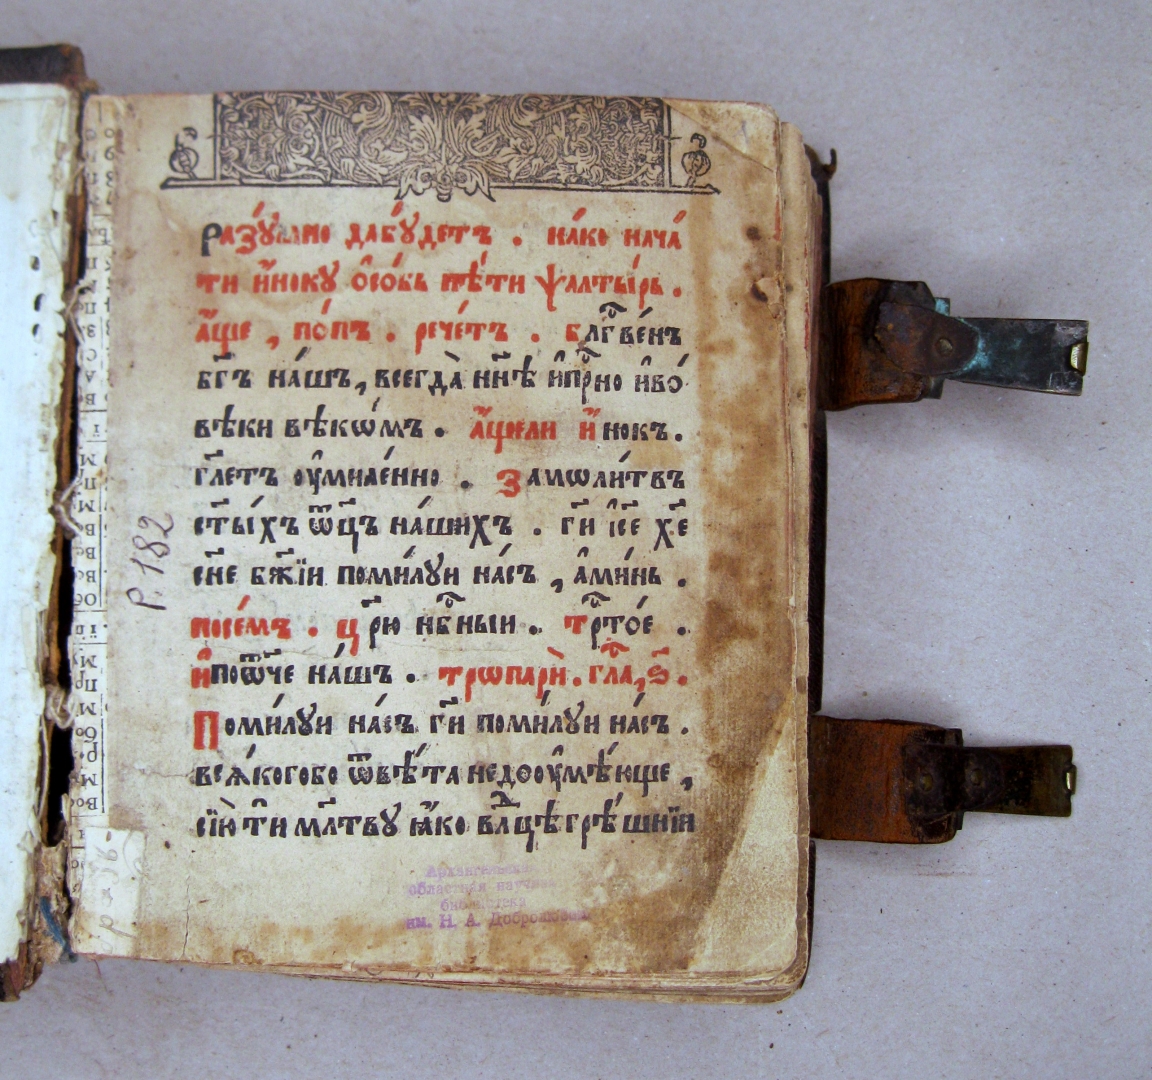 Разꙋмно дабꙋ́детъ . ка́ко нача́
ти и҆́нокꙋ ѻ҆со́бь пѣ́ти ѱалты́рь .
а҆́ще , по́пъ . рече́тъ . блгⷭ҇ве́нъ
бг҃ъ на́шъ , всегда̀ нн҃ѣ и҆прⷭ҇но и҆во́
вѣ́ки вѣкѡ́мъ . а҆́щели и҆́нокъ .
гл҃етъ ѹ҆миле́нно . Замѡли́твъ
ст҃ы́хъ ѿц҃ъ на́шихъ . гд҃и і҆с҃е хр҃е
сн҃е бж҃їи поми́лꙋи на́съ , а҆ми́нь .
посе́мъ . цр҃ю нбⷭ҇ныи . трⷭ҇то́е .
и҆поѿче на́шъ . трѡпарѝ . гла́ⷭ , ѕ҃ .
Поми́лꙋи на́съ гд҃и поми́лꙋи на́съ .
всѧ́когобо ѿвѣ́та недоѹ҆мѣ́юще ,
сїю̀ ти мл҃твꙋ ꙗ҆́ко влⷣцѣ грѣ́шнїи
Р. 182
Архангельская
областная научная
библиотека
им. Н. А. Добролюбова